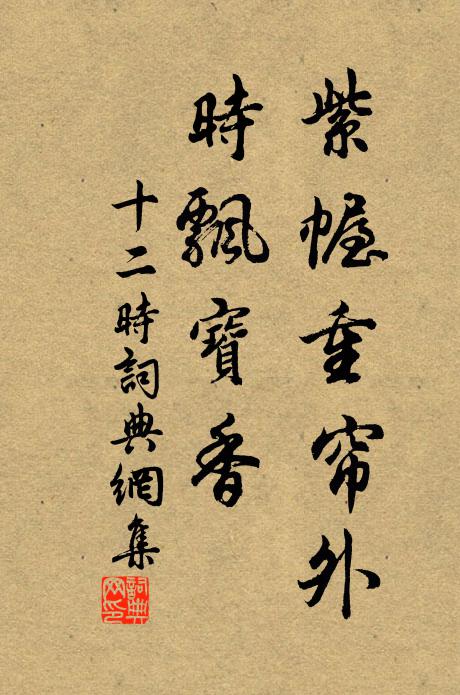 紫幄重帘外
時飄寶香
十二時詞典網集
詞典
网印